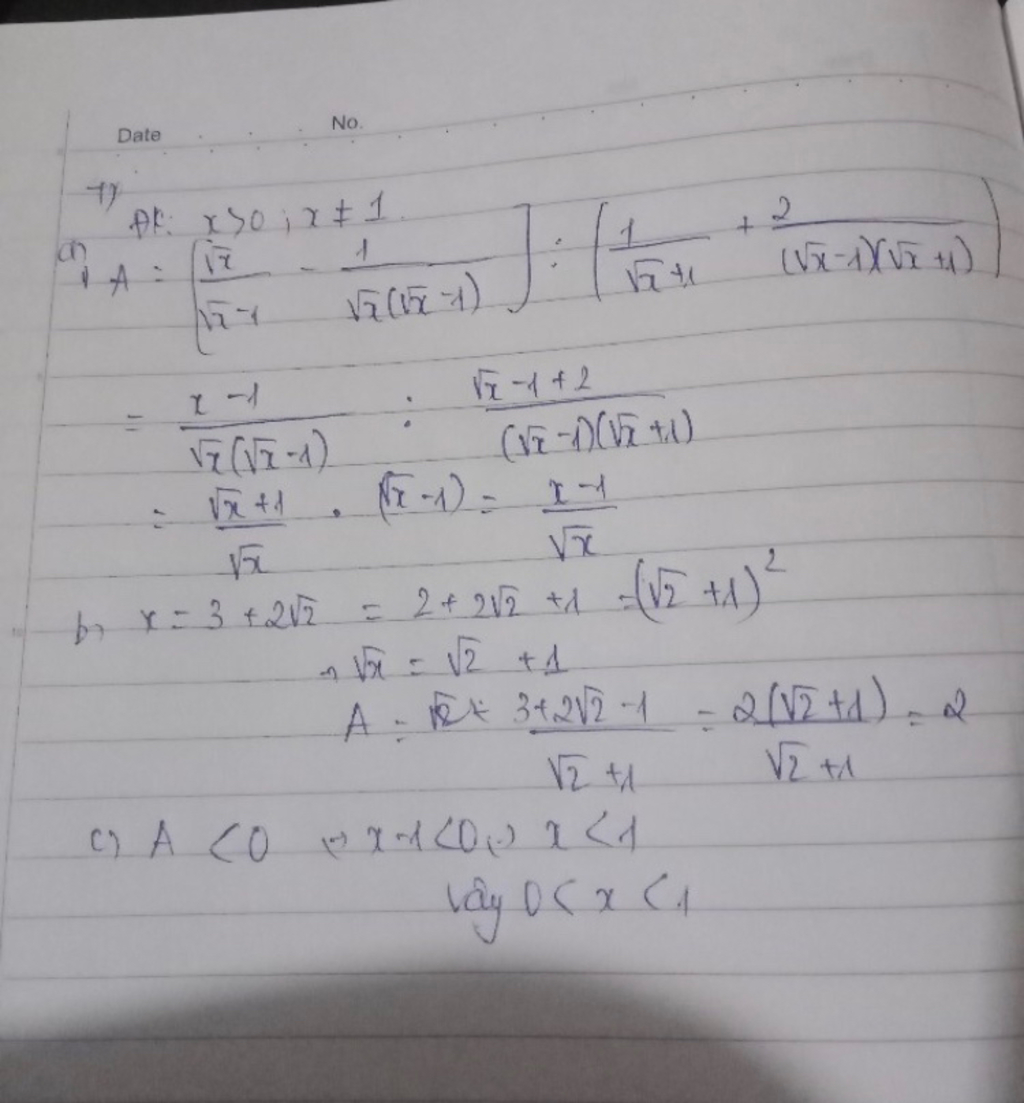 Date No.
1)
ĐK: x>0; x ≠ 1.
a) A = [√x/(√x-1) - 1/(√x(√x-1))] : (1/(√x+1) + 2/((√x-1)(√x+1)))
= (x-1)/(√x(√x-1)) : (√x-1+2)/((√x-1)(√x+1))
= (√x+1)/√x . (√x-1) = (x-1)/√x
b, x = 3+2√2 = 2+2√2+1 = (√2+1)²
⇒ √x = √2 + 1
A = (3+2√2-1)/(√2+1) = 2(√2+1)/(√2+1) = 2
c, A < 0 ⇔ x-1<0 ⇔ x < 1
Vậy 0 < x < 1